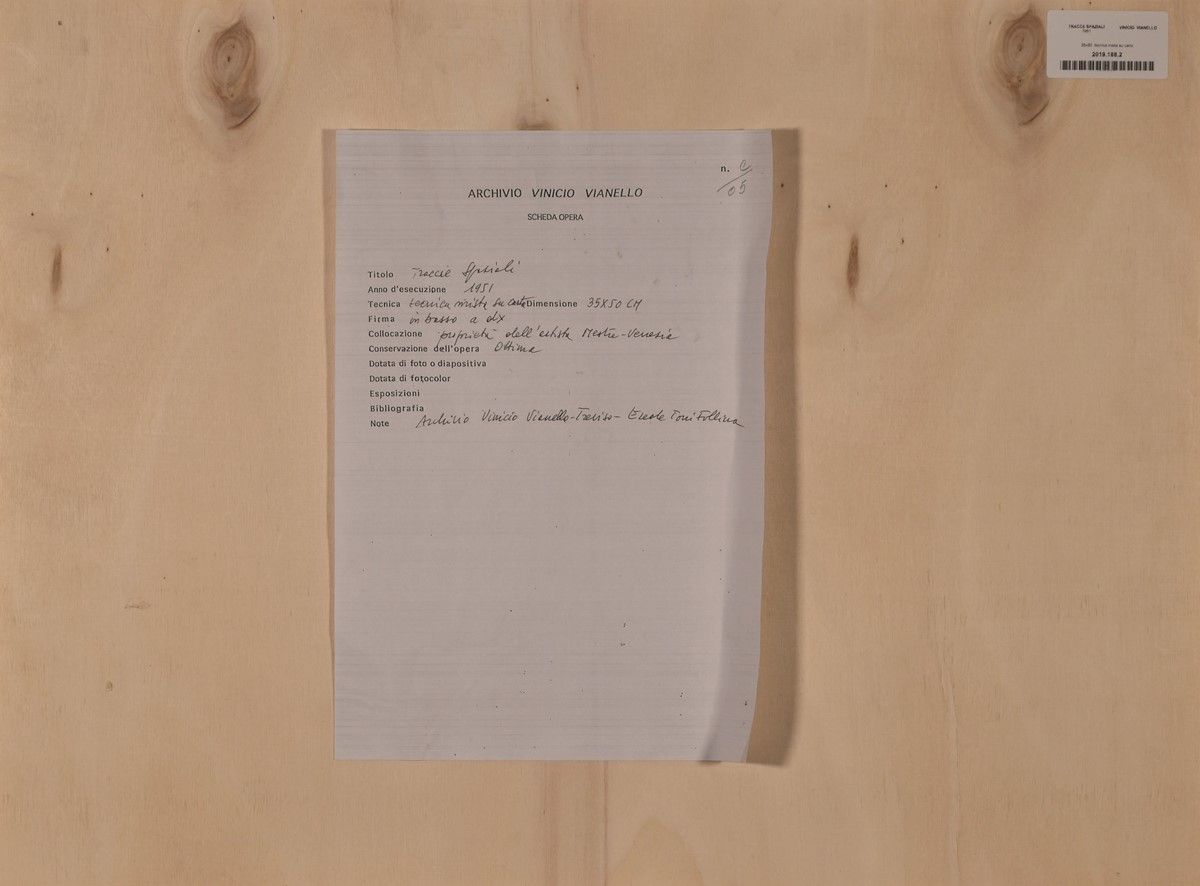 TRACCE SPAZIALI VINICIO VIANELLO
1951
35x50 tecnica mista su carta
2019.188.2
n. C/05
ARCHIVIO VINICIO VIANELLO
SCHEDA OPERA
Titolo Traccie Spaziali
Anno d'esecuzione 1951
Tecnica tecnica mista su carta Dimensione 35X50 CM
Firma in basso a dx
Collocazione proprietà dell'artista Mestre-Venezia
Conservazione dell'opera Ottima
Dotata di foto o diapositiva
Dotata di fotocolor
Esposizioni
Bibliografia
Note Archivio Vinicio Vianello-Treviso- Toni Follina